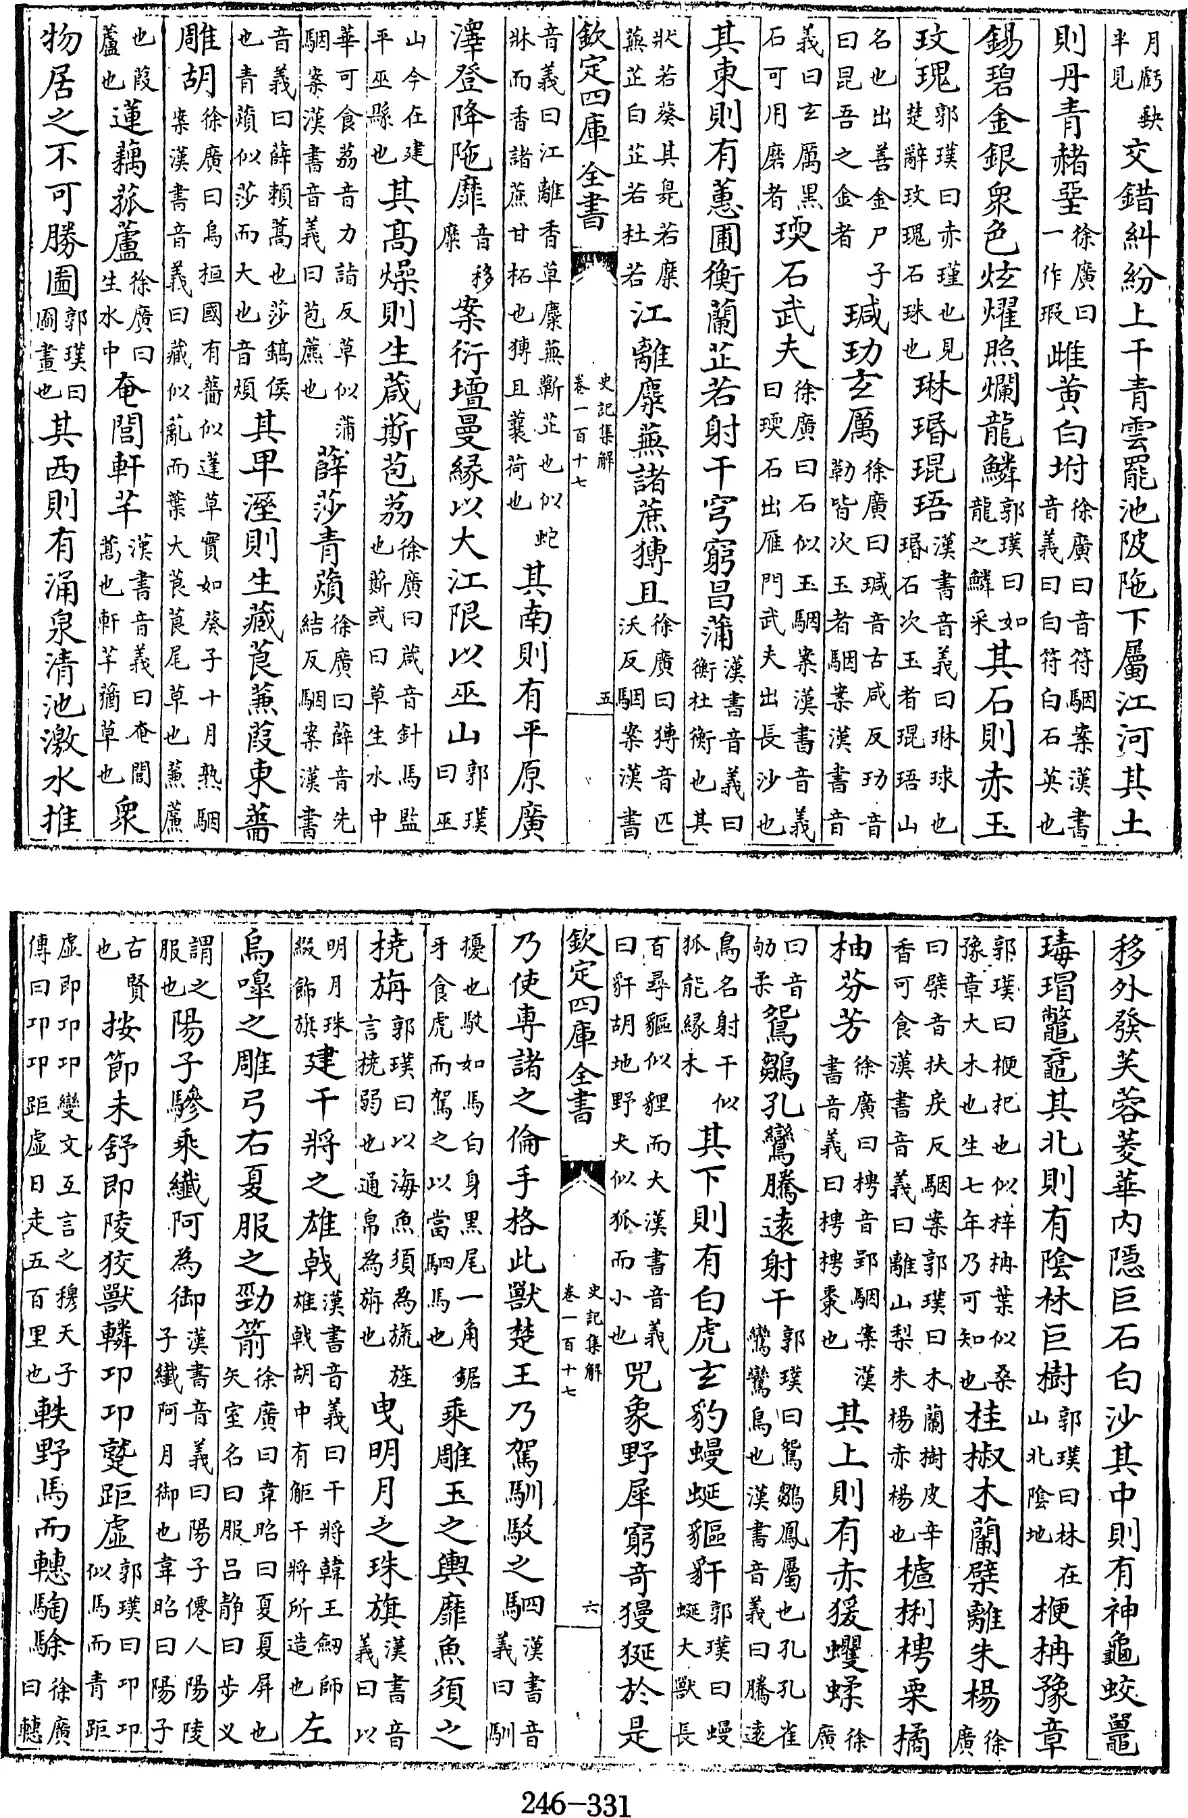 月虧缺半見交錯糾紛上干青雲罷池陂陁下屬江河其土
則丹青赭堊徐廣曰一作瑕雌黃白坿徐廣曰音符駰案漢書音義曰白符白石英也
錫碧金銀衆色炫燿照爛龍鱗郭璞曰如龍之鱗采其石則赤玉
玫瑰郭璞曰赤瑾也見楚辭玫瑰石珠也琳瑉琨珸漢書音義曰琳球也瑉石次玉者琨珸山
名也出善金尸子曰昆吾之金者瑊玏玄厲徐廣曰瑊音古咸反玏音勒皆次玉者駰案漢書音
義曰玄厲黑石可用磨者瑌石武夫徐廣曰石似玉駰案漢書音義曰瑌石出雁門武夫出長沙也
其東則有蕙圃衡蘭芷若射干穹窮昌蒲漢書音義曰衡杜衡也其
狀若葵其臭若麋蕪芷白芷若杜若江離麋蕪諸蔗猼且徐廣曰猼音匹沃反駰案漢書
欽定四庫全書 史記集解卷一百十七 五
音義曰江離香草麋蕪蘄芷也似蛇牀而香諸蔗甘柘也猼且蘘荷也其南則有平原廣
澤登降陁靡音移糜案衍壇曼緣以大江限以巫山郭璞曰巫
山今在建平巫縣也其高燥則生葴斯苞荔徐廣曰葴音針馬監也蘄或曰草生水中
華可食荔音力詣反草似蒲駰案漢書音義曰苞藨也薛莎青薠徐廣曰薛音先結反駰案漢書
音義曰薛賴蒿也莎鎬侯也青薠似莎而大也音煩其卑溼則生藏莨蒹葭東薔
雕胡徐廣曰烏桓國有薔似蓬草實如葵子十月熟駰案漢書音義曰藏似薍而葉大莨莨尾草也蒹薕
也葭蘆也蓮藕菰蘆徐廣曰生水中奄閭軒芋漢書音義曰奄閭蒿也軒芋蕕草也衆
物居之不可勝圖郭璞曰圖畫也其西則有涌泉清池激水推
移外發芙蓉菱華內隱巨石白沙其中則有神龜蛟鼉
瑇瑁鼈黿其北則有陰林巨樹郭璞曰林在山北陰地楩柟豫章
郭璞曰楩杞也似梓柟葉似桑豫章大木也生七年乃可知也桂椒木蘭檗離朱楊徐廣
曰檗音扶戾反駰案郭璞曰木蘭樹皮辛香可食漢書音義曰離山梨朱楊赤楊也樝梸梬栗橘
柚芬芳徐廣曰梬音郢駰案漢書音義曰梬梬棗也其上則有赤猨蠷蝚徐廣
曰音劬柔鵷鶵孔鸞騰遠射干郭璞曰鵷鶵鳳屬也孔孔雀鸞鸞鳥也漢書音義曰騰遠
鳥名射干似狐能緣木其下則有白虎玄豹蟃蜒貙豻郭璞曰蟃蜒大獸長
百尋貙似貍而大漢書音義曰豻胡地野犬似狐而小也兕象野犀窮奇獌狿於是
欽定四庫全書 史記集解卷一百十七 六
乃使專諸之倫手格此獸楚王乃駕馴駮之駟漢書音義曰馴
擾也駮如馬白身黑尾一角鋸牙食虎而駕之以當駟馬也乘雕玉之輿靡魚須之
橈旃郭璞曰以海魚須為旒旌言橈弱也通帛為旃也曳明月之珠旗漢書音義曰以
明月珠綴飾旗建干將之雄戟漢書音義曰干將韓王劒師雄戟胡中有鮔干將所造也左
烏嘷之雕弓右夏服之勁箭徐廣曰韋昭曰夏夏羿也矢室名曰服呂靜曰步义
謂之服也陽子驂乘纖阿為御漢書音義曰陽子僊人陽陵子纖阿月御也韋昭曰陽子
古賢也按節未舒即陵狡獸轔卭卭蹵距虛郭璞曰卭卭似馬而青距
虛即卭卭變文互言之穆天子傳曰卭卭距虛日走五百里也軼野馬而轊騊駼徐廣曰轊
246-331